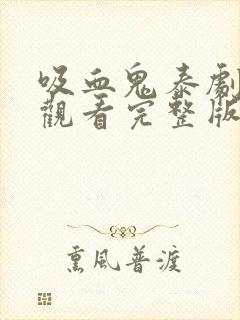 吸血鬼泰劇
觀看完整版
熏風普渡